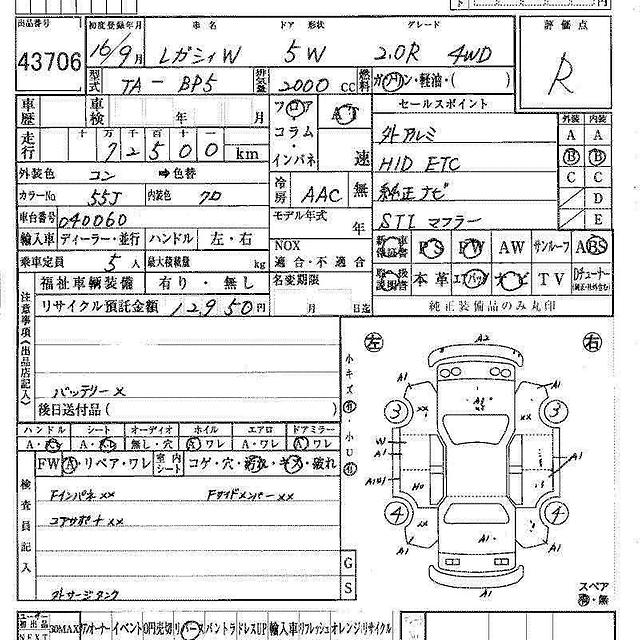 出品番号 初度登録年月 車名 ドア 形状 グレード 評価点
43706 16/9月 レガシィW 5W 2.0R 4WD R
型式 TA-BP5 排気量 2000 CC 燃料 ガソリン・軽油・( )
車歴 車検 年 月 フロア AT セールスポイント
外装 内装
走行 十万千百十 72500 km コラム・インパネ 速
外アルミ A A
HID ETC B B
外装色 コン ⇒色替 冷房 AAC 無 純正ナビ C C
カラーNo 55J 内装色 クロ モデル年式 年 D
車台番号 040060 STIマフラー E
輸入車 ディーラー・並行 ハンドル 左・右 NOX 適合・不適合
新車保証書 PS PW AW サンルーフ ABS
乗車定員 5人 最大積載量 kg 取扱説明書 本革 エアバッグ ナビ TV Dチューナー
福祉車輌装備 有り・無し 名変期限 月 日迄 純正装備品のみ丸印
リサイクル預託金額 12950円
注意事項(出品店記入)
左 右
小キズ有・小U有
バッテリーX
後日送付品(
ハンドル シート オーディオ ホイル エアロ ドアミラー
無し・穴 A・ワレ A・ワレ A・ワレ
FW A・リペア・ワレ 室内シート コゲ・穴・汚れ・キズ・破れ
検査員記入
Fインパネxx Fサイドメンバーxx
コアサポートxx
G
S
A2
A1 A1
3 3
W
A1 A1
4 4
A1 A1
A1
スペア
有・無
30MAX イベント 0円売切 リバース パントラ ドレスUP 輸入車 リフレッシュ オレンジ リサイクル